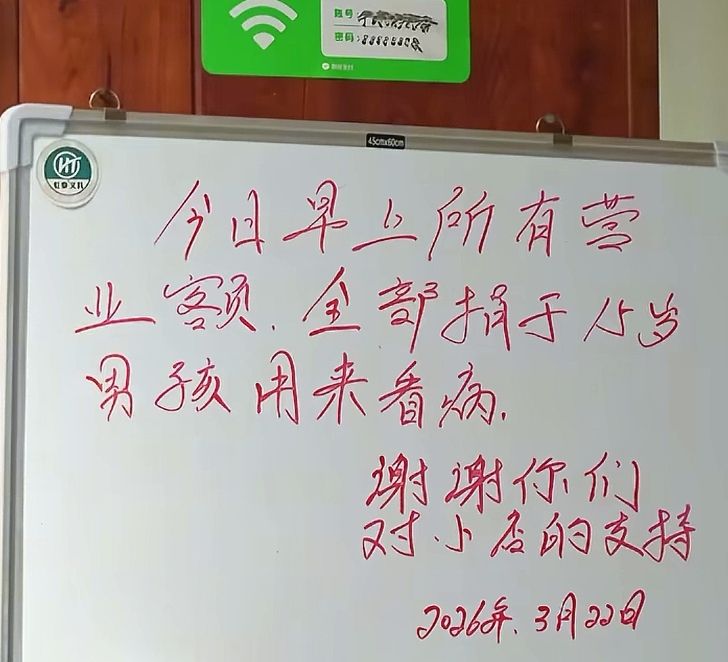 账号:
密码:
微信支付
45cmx60cm
HT
今日早上所有营
业客页.全部捐于15岁
男孩用来看病.
谢谢你们
对小店的支持
2026年.3月22日